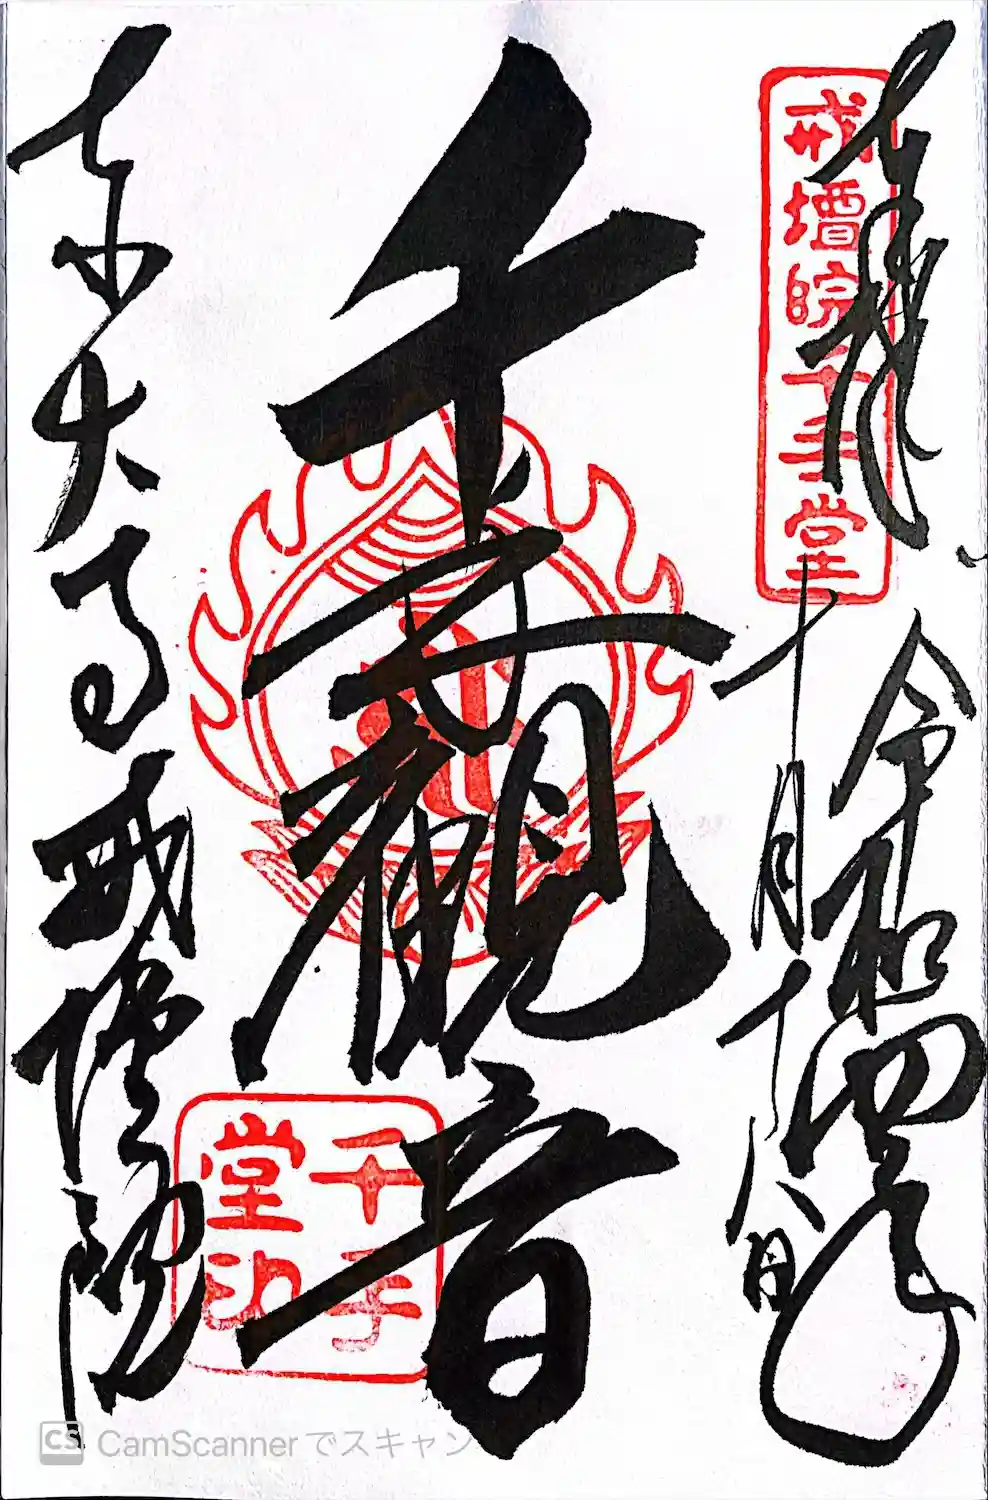 奉拝
戒壇院千手堂
令和四年
十月十八日
千手觀音
千手
堂印
東大寺戒壇院
CS CamScannerでスキャン